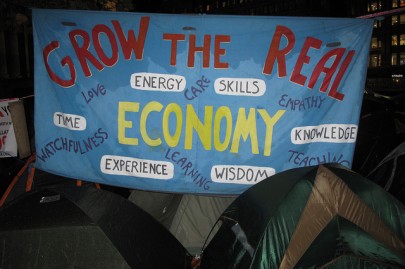 GROW THE REAL
ENERGY CARE SKILLS
Love EMPATHY
TIME ECONOMY KNOWLEDGE
WATCHFULNESS LEARNING TEACHING
EXPERIENCE WISDOM